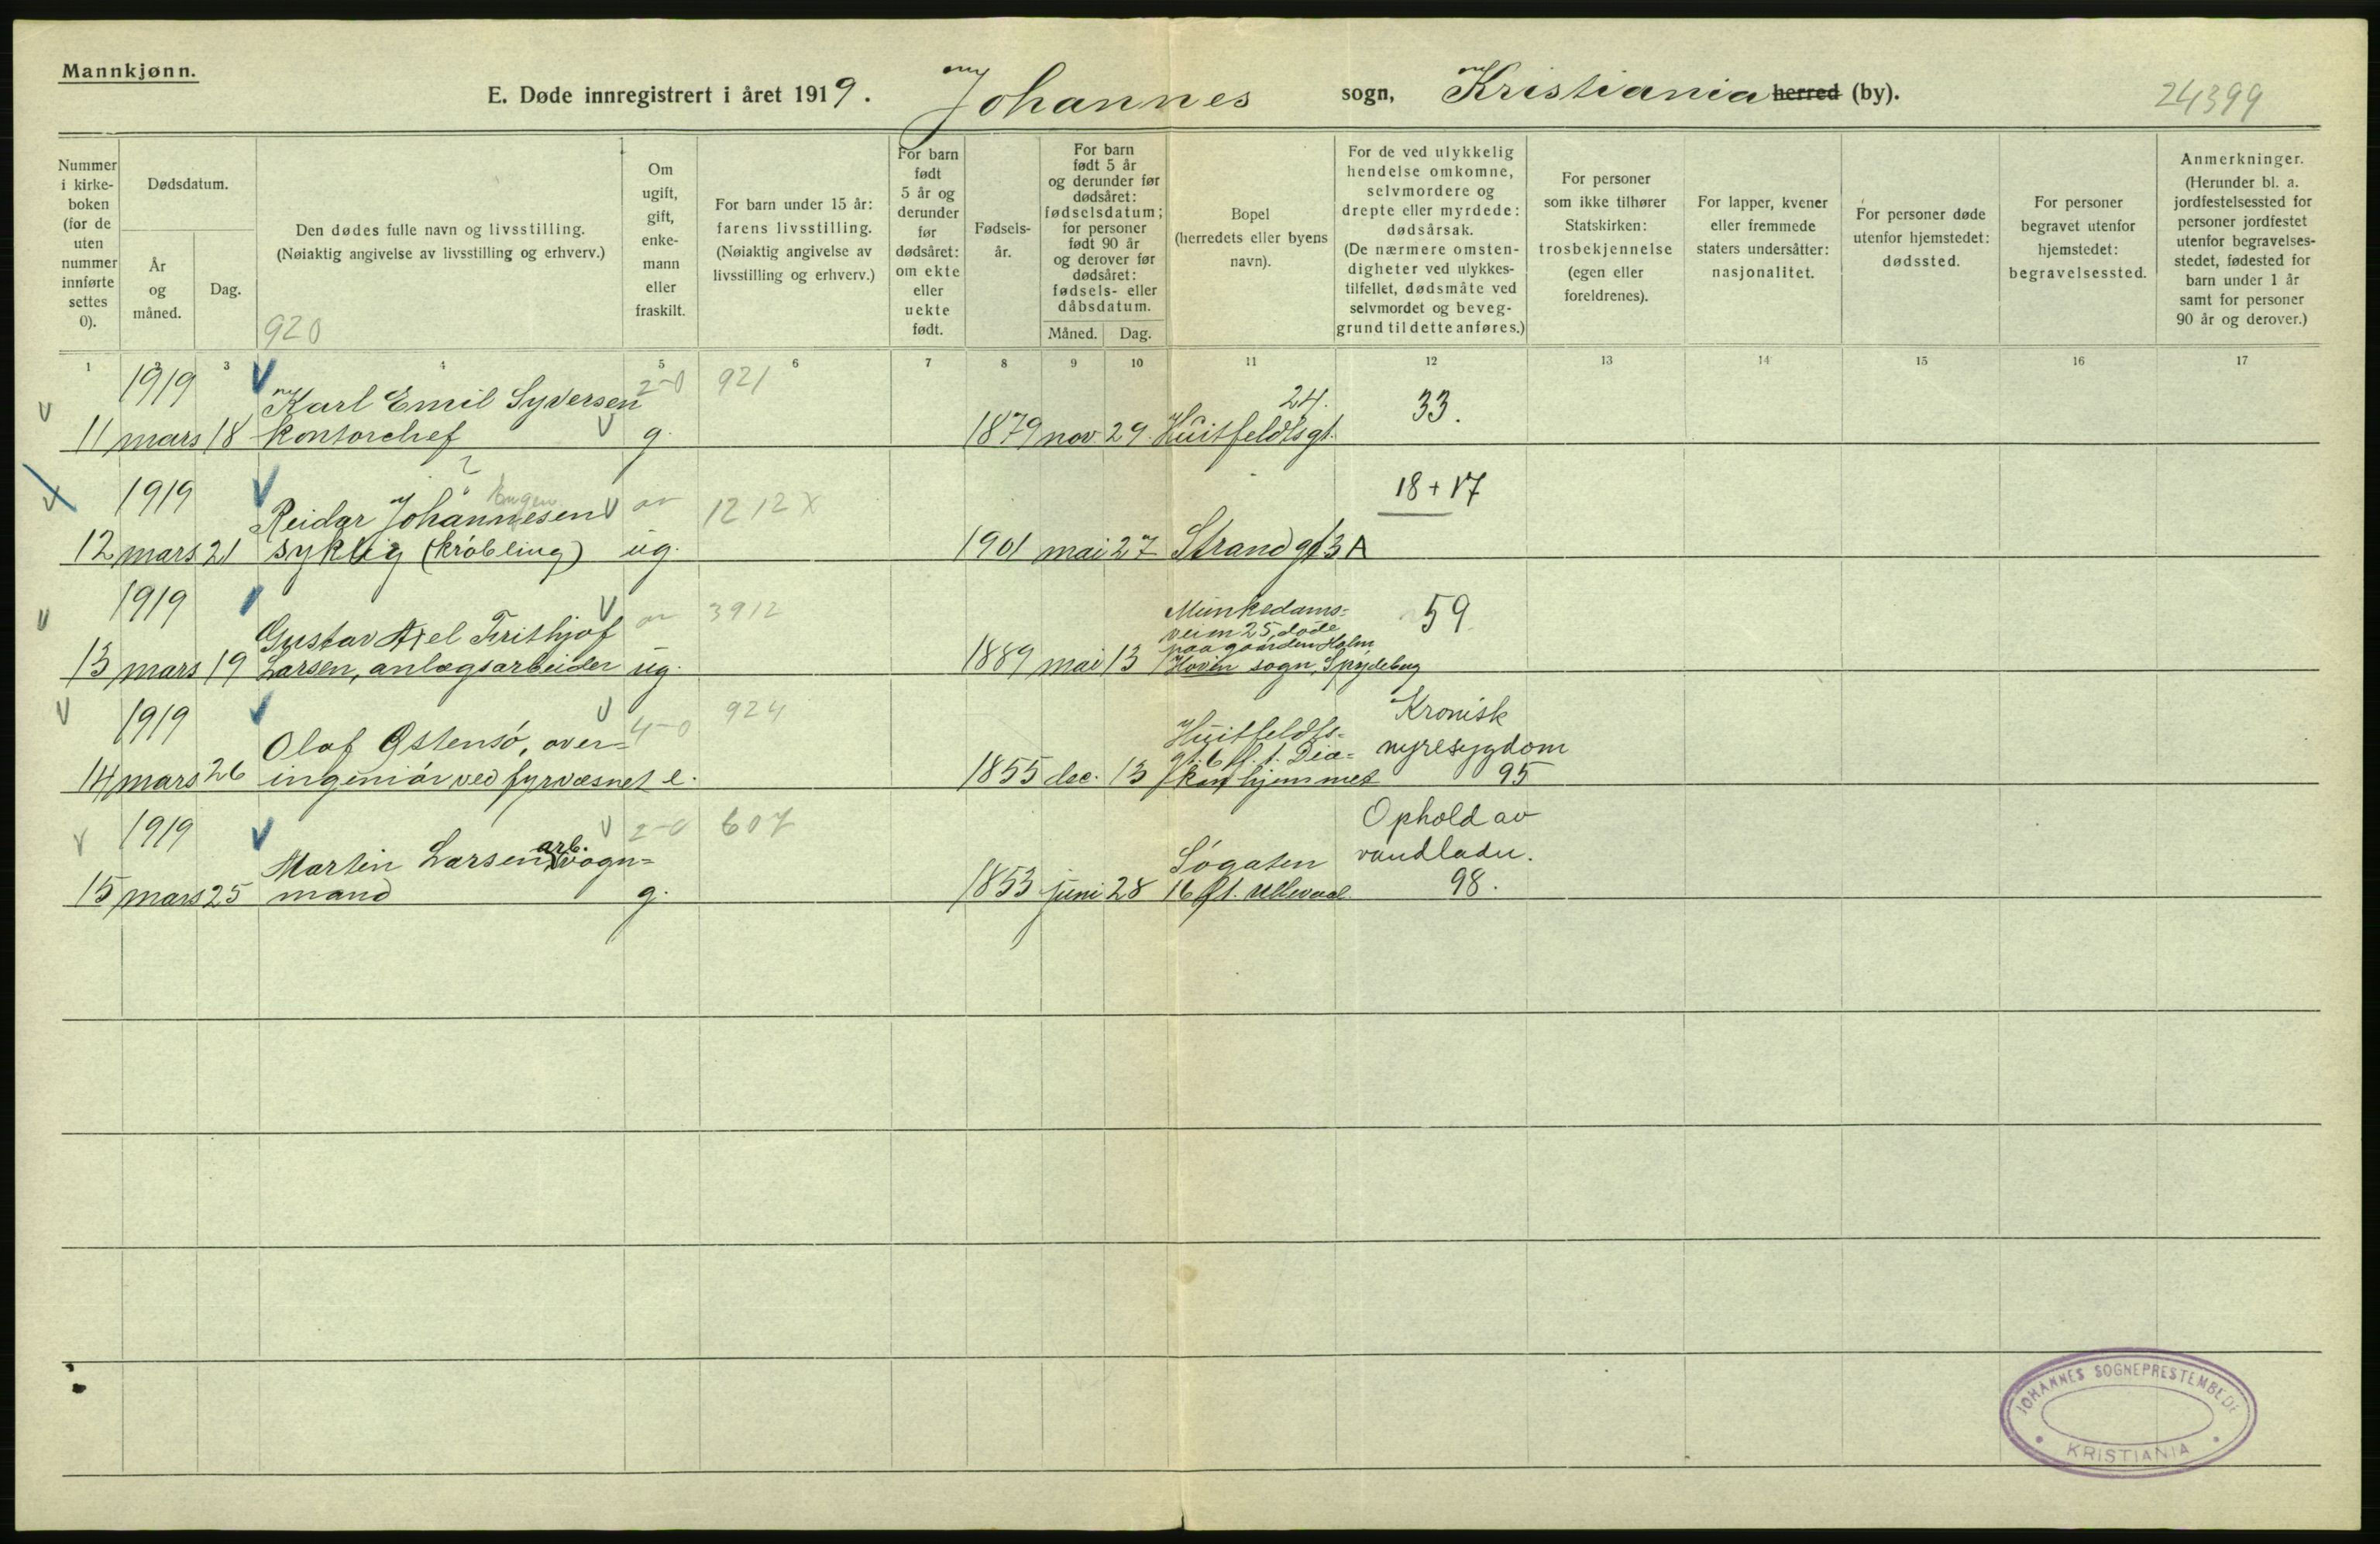 Mannkjønn.
E. Døde innregistrert i året 1919. Johannes sogn, Kristiania herred (by).
24399
Nummer i kirke-boken (for de uten nummer innførte settes 0).
Dødsdatum.
År og måned.
Dag.
Den dødes fulle navn og livsstilling.
(Nøiaktig angivelse av livsstilling og erhverv.)
920
Om ugift, gift, enke-mann eller fraskilt.
For barn under 15 år: farens livsstilling.
(Nøiaktig angivelse av livsstilling og erhverv.)
For barn født 5 år og derunder før dødsåret: om ekte eller uekte født.
Fødsels-år.
For barn født 5 år og derunder før dødsåret: fødselsdatum; for personer født 90 år og derover før dødsåret: fødsels- eller dåbsdatum.
Måned. Dag.
Bopel
(herredets eller byens navn).
For de ved ulykkelig hendelse omkomne, selvmordere og drepte eller myrdede: dødsårsak.
(De nærmere omsten-digheter ved ulykkes-tilfellet, dødsmåte ved selvmordet og beveg-grund til dette anføres.)
For personer som ikke tilhører Statskirken: trosbekjennelse (egen eller foreldrenes).
For lapper, kvener eller fremmede staters undersåtter: nasjonalitet.
For personer døde utenfor hjemstedet: dødssted.
For personer begravet utenfor hjemstedet: begravelsessted.
Anmerkninger.
(Herunder bl. a. jordfestelsessted for personer jordfestet utenfor begravelses-stedet, fødested for barn under 1 år samt for personer 90 år og derover.)
1 2 3 4 5 6 7 8 9 10 11 12 13 14 15 16 17
1919 Karl Emil Syversen 2-0 921 24. 33.
11 mars 18 kontorchef g. 1879 nov. 29. Huitfeldtsgt.
1919 Reidar Johannesen 1212 X 18 + 17
12 mars 21 syklig (krøbling) ug. 1901 mai 27 Strandgt 3 A
1919 Gustav Axel Frithjof 3912 Munkedams- 59
veien 25, døde
paa gaarden Holm
13 mars 19 Larsen, anlægsarbeider ug. 1889 mai 13 Hovin sogn, Spydeberg
1919 Olaf Østensø, over- 4-0 924 Huitfeldts- Kronisk
gt. 6 fl. t. Dia- nyresygdom
14 mars 26 ingeniør ved fyrvæsnet e. 1855 dec. 13 konhjemmet 95
1919 Martin Larsen, arb. vogn- 2-0 607 Søgaten Ophold av vandladn.
15 mars 25 mand g. 1853 juni 28 16 fl. t. Ullevaal. 98.
JOHANNES SOGNEPRESTEMBEDE
KRISTIANIA